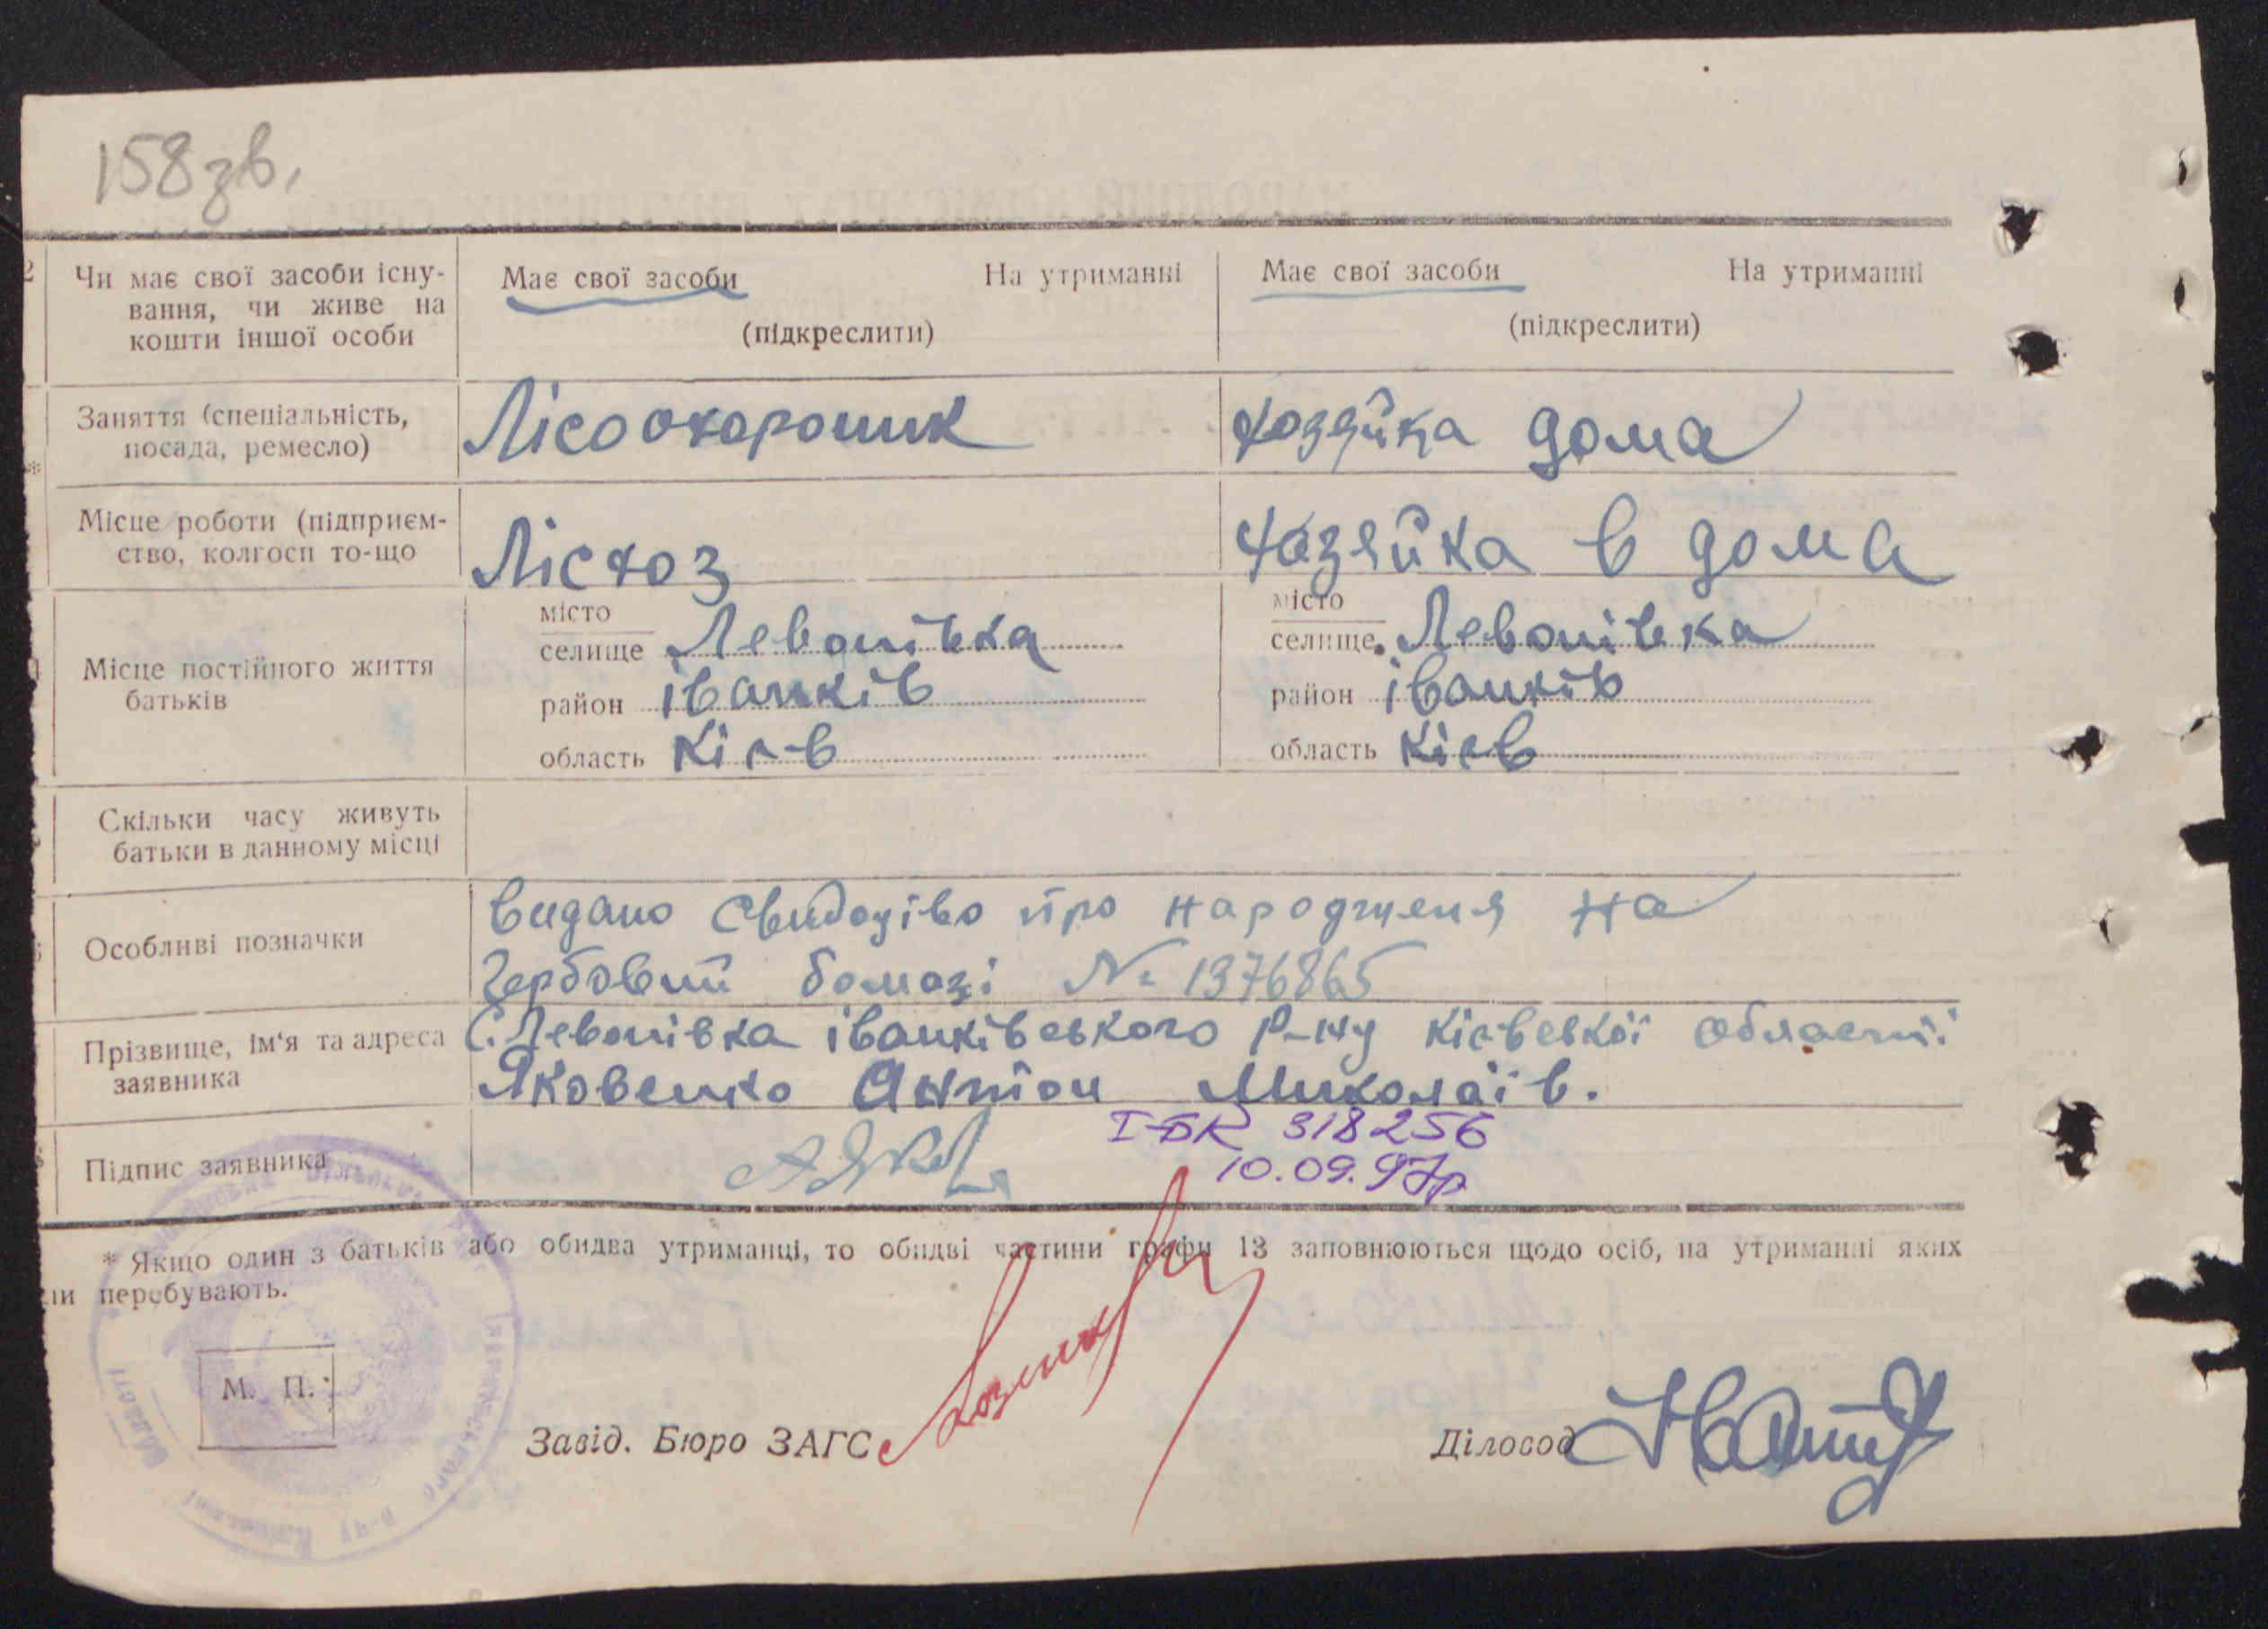 158зв.
Чи має свої засоби існу-
вання, чи живе на
кошти іншої особи
Має свої засоби На утриманні
(підкреслити)
Має свої засоби На утриманні
(підкреслити)
Заняття (спеціальність,
посада, ремесло)
Лісоохороник
хозяйка дома
Місце роботи (підприєм-
ство, колгосп то-що
Лісхоз
хазяйка в дома
Місце постійного життя
батьків
місто
селище Левонівка
район іванків
область Київ
місто
селище Левонівка
район іванків
область Кіев
Скільки часу живуть
батьки в данному місці
Особливі позначки
Видано Свидозіво про народженя на
Гербовий бомазі № 1376865
Прізвище, ім'я та адреса
заявника
С. Левонівка іванківського р-ну Кієвської області
Яковенко Антон Миколаїв.
Підпис заявника
І-БК 318256
10.09.97р
* Якщо один з батьків або обидва утриманці, то обидві частини графи 13 заповнюються щодо осіб, на утриманні яких
ли перебувають.
М. П.
Завід. Бюро ЗАГС
Діловод